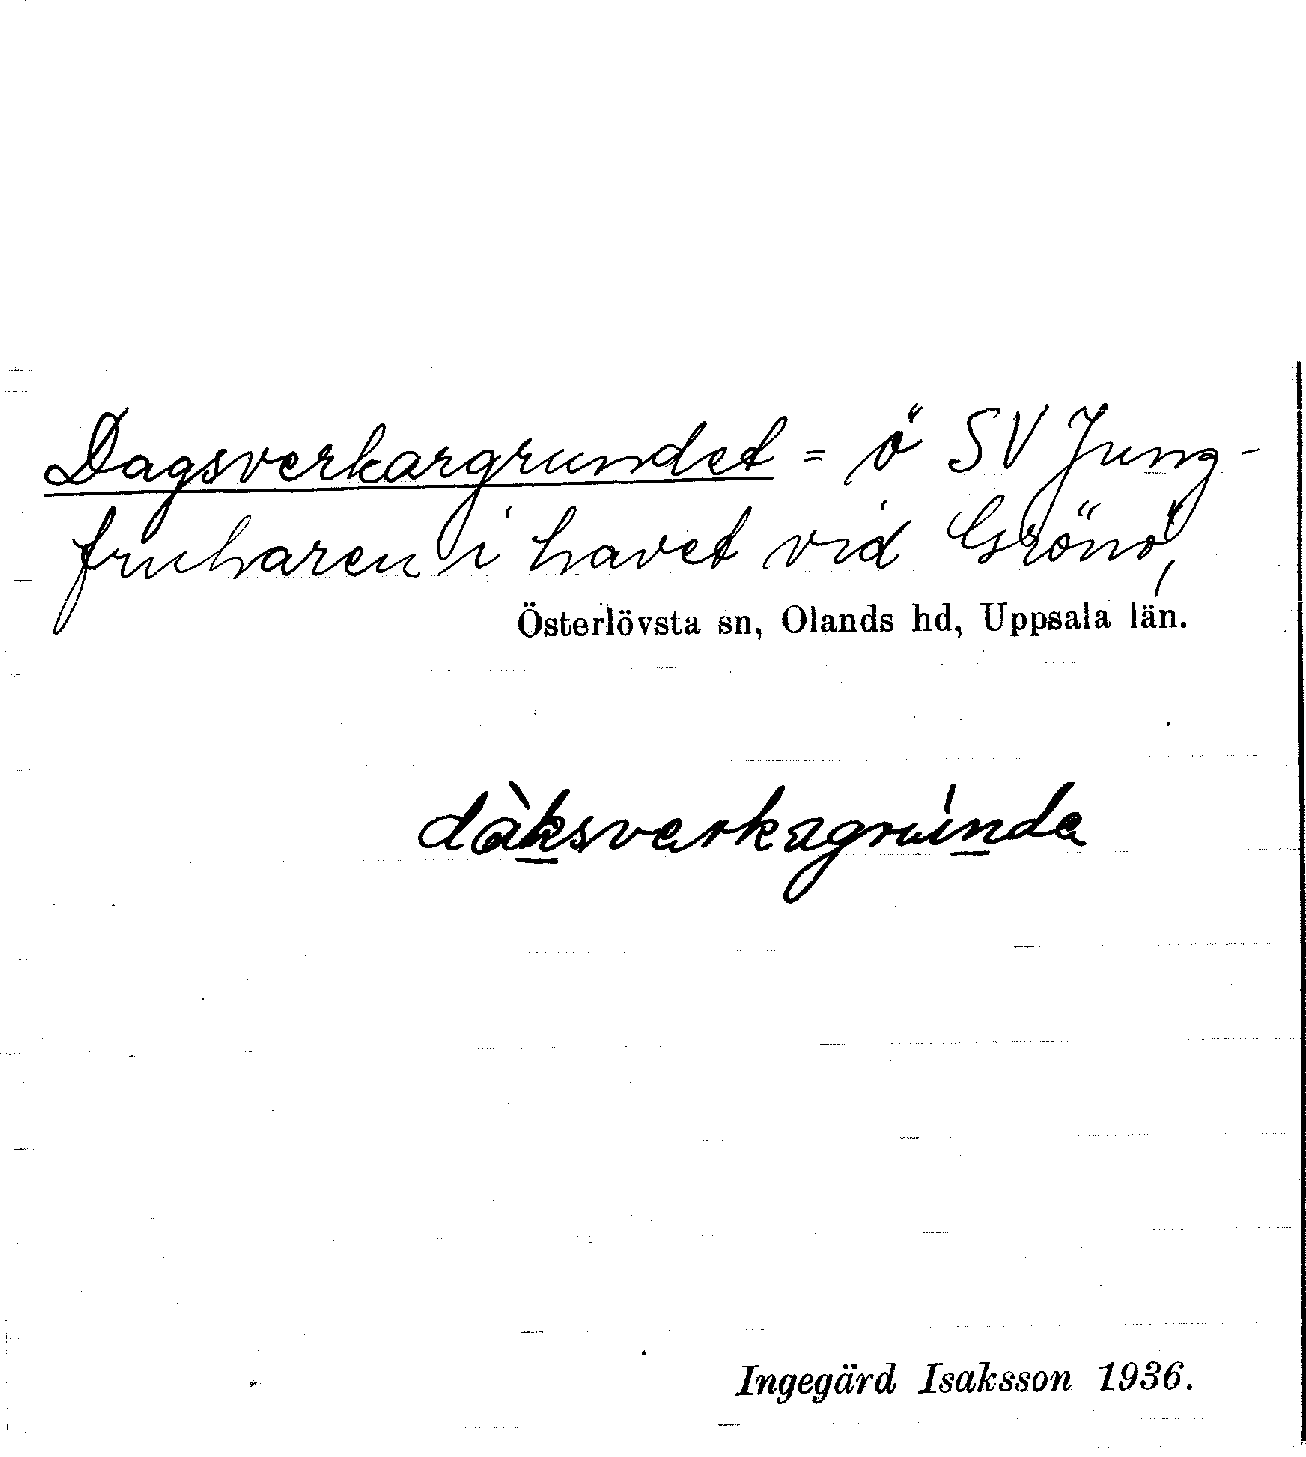 Dagsverkargrundet = ö SV Jung-
fruharen i havet vid Grönö,
Österlövsta sn, Olands hd, Uppsala län.
dàksverkagrúnda
Ingegärd Isaksson 1936.